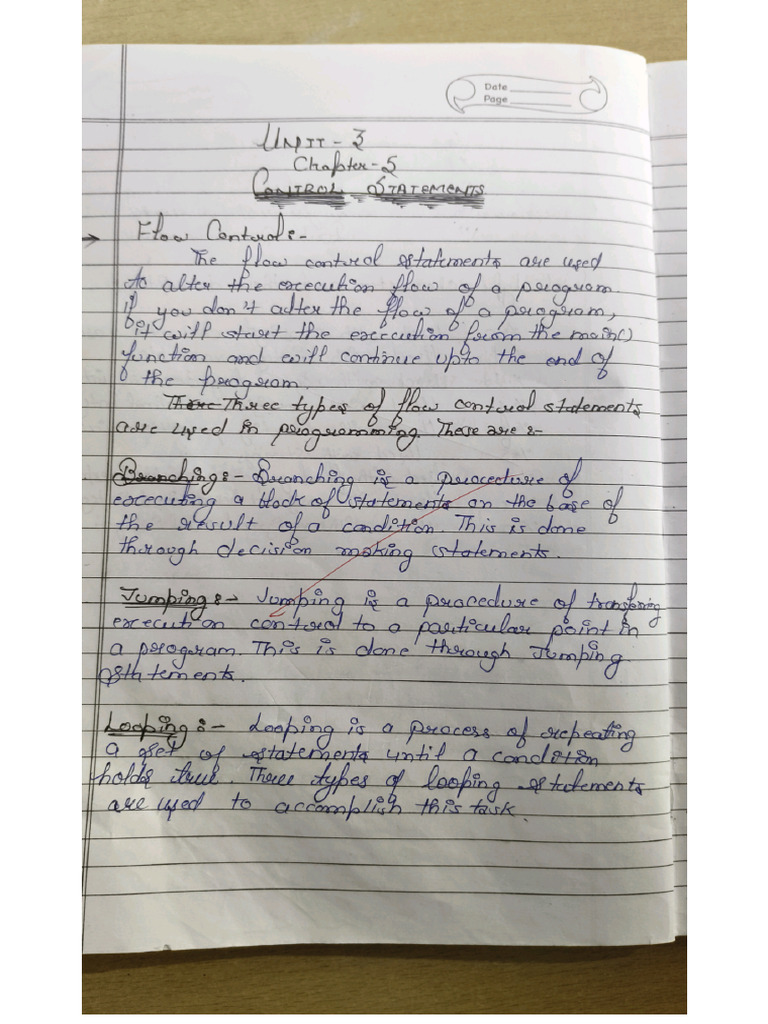 Date
Page
UNIT-3
Chapter-5
CONTROL STATEMENTS
→ Flow Control:-
The flow control statements are used
to alter the execution flow of a program.
if you don't alter the flow of a program,
it will start the execution from the main()
function and will continue upto the end of
the program.
Three types of flow control statements
are used in programming. These are :-
Branching:- Branching is a procedure of
executing a block of statements on the base of
the result of a condition. This is done
through decision making statements.
Jumping:- Jumping is a procedure of transfering
execution control to a particular point in
a program. This is done through Jumping
sthtements.
Looping:- Looping is a process of repeating
a set of statements until a condition
holds true. Three types of looping statements
are used to accomplish this task.